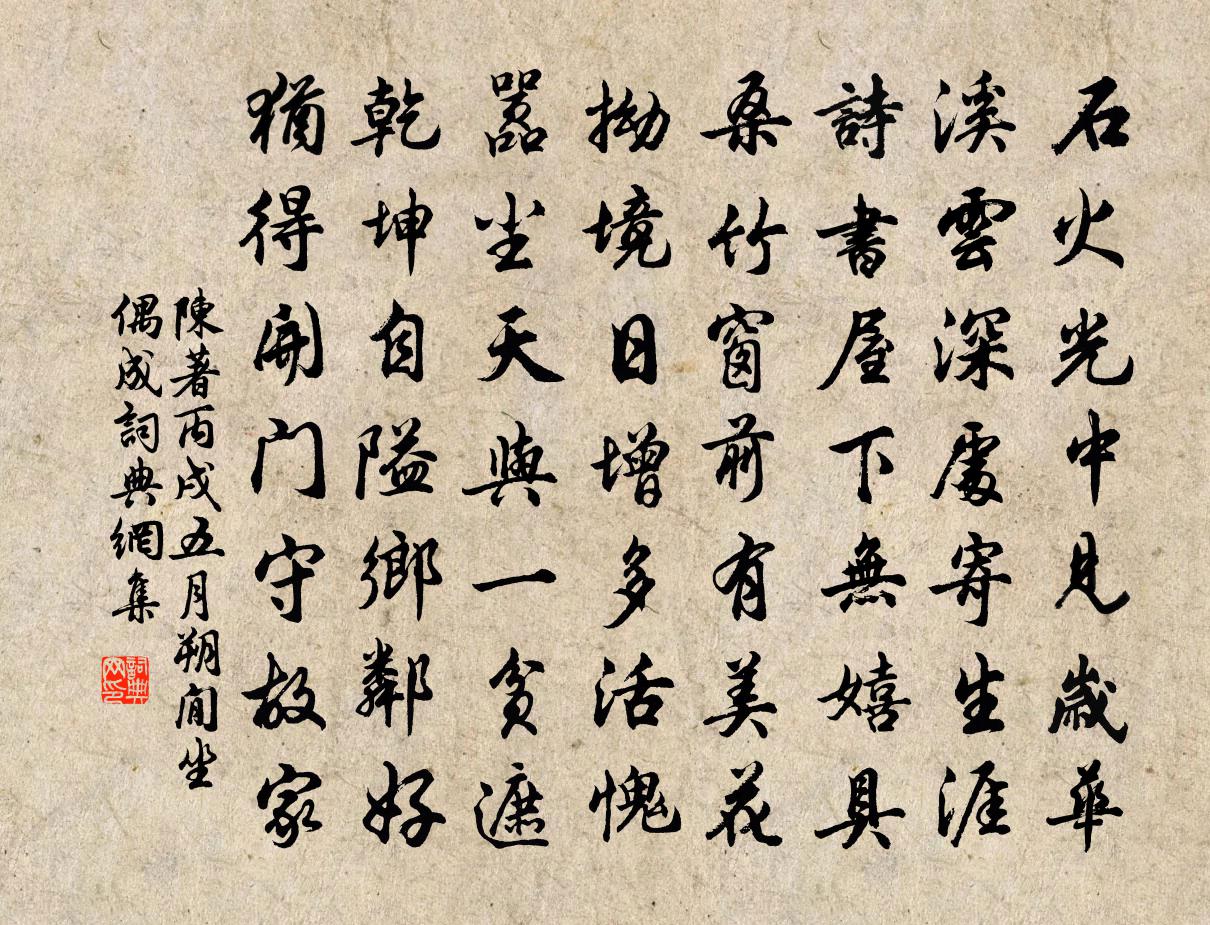 石火光中見歲華
溪雲深處寄生涯
詩書屋下無嬉具
桑竹窗前有美花
拗境日增多活愧
囂尘天與一貧遮
乾坤自隘鄉鄰好
猶得開门守故家
陳著丙戌五月朔閒坐
偶成詞典網集
詞典网印